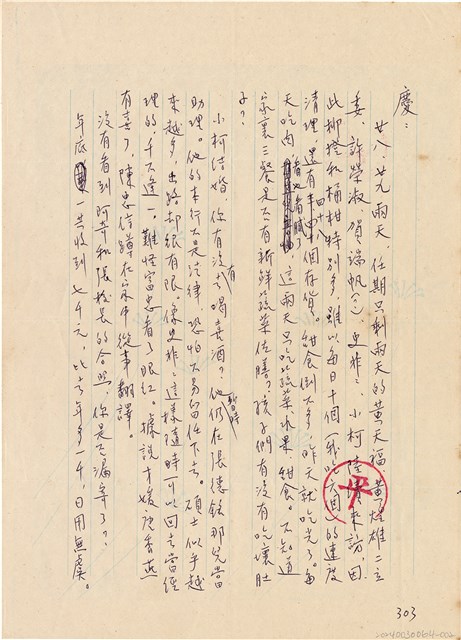 慶：
廿八、廿九兩天，任期只剩兩天的黃天福、黃煌雄二立
委、許榮淑、賀端帆（？）、史非非、小柯陸續來訪，因
此椪柑和桶柑特別多，雖以每日十個（我吃六個）的速度
清理，還有半四十個存貨。甜食倒不多，昨天就吃光了。每
天吃肉看也看膩了，這兩天只吃蔬菜水果、甜食。不知道
家裏三餐是不有新鮮蔬菜佐膳？孩子們有沒有吃壞肚
子？
小柯結婚，你有沒有去喝喜酒？他仍在張德銘那兒暫時當
助理。他的本行不是法律，恐怕不易留任下去。碩士似乎越
來越多，出路却很有限。像史非非這樣隨時可以回去當經
理的千不逢一，難怪富忠看了眼紅。據說才嫁唐香燕
有喜了，陳忠信蹲在家中從事翻譯。
沒有看到阿菁和張校長的合照，你是否漏寄了？
年底一共收到七千元，比去年多一千，日用無虞。
平
303